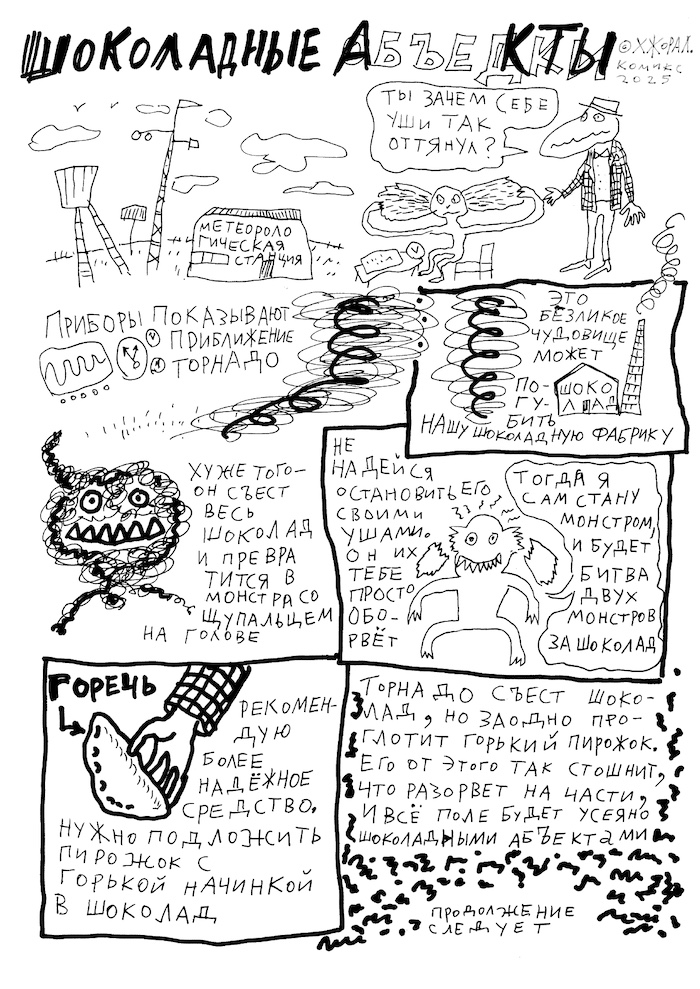 ШОКОЛАДНЫЕ АБЪЕКТЫ
© ХЖОРАЛ.
КОМИКС
2025
ТЫ ЗАЧЕМ СЕБЕ
УШИ ТАК
ОТТЯНУЛ?
МЕТЕОРОЛО
ГИЧЕСКАЯ
СТАНЦИЯ
ПРИБОРЫ ПОКАЗЫВАЮТ
ПРИБЛИЖЕНИЕ
ТОРНАДО
ЭТО
БЕЗЛИКОЕ
ЧУДОВИЩЕ
МОЖЕТ
ПО-
ГУ-
БИТЬ
НАШУ ШОКОЛАДНУЮ ФАБРИКУ
ШОКО
ЛАД
ХУЖЕ ТОГО-
ОН СЪЕСТ
ВЕСЬ
ШОКОЛАД
И ПРЕВРА
ТИТСЯ В
МОНСТРА СО
ЩУПАЛЬЦЕМ
НА ГОЛОВЕ
НЕ
НАДЕЙСЯ
ОСТАНОВИТЬ ЕГО
СВОИМИ
УШАМИ.
ОН ИХ
ТЕБЕ
ПРОСТО
ОБО-
РВЁТ
ТОГДА Я
САМ СТАНУ
МОНСТРОМ,
И БУДЕТ
БИТВА
ДВУХ
МОНСТРОВ
ЗА ШОКОЛАД
ГОРЕЧЬ
РЕКОМЕН-
ДУЮ
БОЛЕЕ
НАДЁЖНОЕ
СРЕДСТВО.
НУЖНО ПОДЛОЖИТЬ
ПИРОЖОК С
ГОРЬКОЙ НАЧИНКОЙ
В ШОКОЛАД
ТОРНАДО СЪЕСТ ШОКО-
ЛАД, НО ЗАОДНО ПРО-
ГЛОТИТ ГОРЬКИЙ ПИРОЖОК.
ЕГО ОТ ЭТОГО ТАК СТОШНИТ,
ЧТО РАЗОРВЕТ НА ЧАСТИ,
И ВСЁ ПОЛЕ БУДЕТ УСЕЯНО
ШОКОЛАДНЫМИ АБЪЕКТАМИ
ПРОДОЛЖЕНИЕ
СЛЕДУЕТ